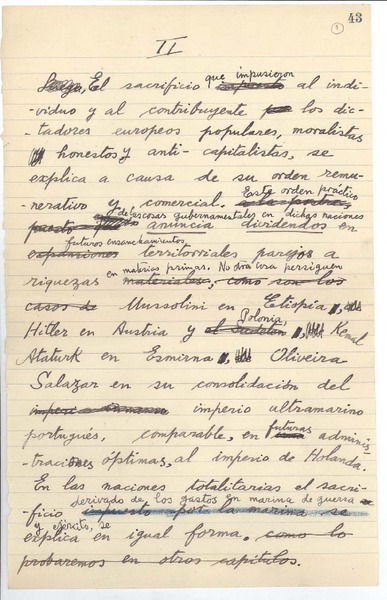 43
1
II
El sacrificio que impusieron al indi-
-viduo y al contribuyente los dic-
-tadores europeos populares, moralistas
honestos y anti-capitalistas, se
explica a causa de su orden remu-
-nerativo y comercial. Este orden práctico
de las cosas gubernamentales en dichas naciones
anuncia dividendos en
futuros ensanchamientos
territoriales parejos a
en materias primas. No otra cosa persiguen
riquezas materiales, como son los
casos de Mussolini en Etiopía,
Polonia,
Hitler en Austria y Kemal
Ataturk en Esmirna, Oliveira
Salazar en su consolidación del
imperio ultramarino
portugués, comparable, en futuras adminis-
-traciones óptimas, al imperio de Holanda.
En las naciones totalitarias el sacri-
derivado de los gastos en marina de guerra
-ficio impuesto por la marina se
y ejército, se
explica en igual forma. como lo
probaremos en otros capítulos.